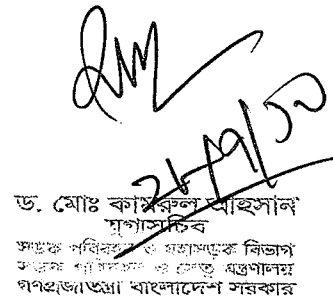 ২৮/৭/১০
ড. মোঃ কামরুল আহসান
যুগ্মসচিব
সড়ক পরিবহন ও মহাসড়ক বিভাগ
সড়ক পরিবহন ও সেতু মন্ত্রণালয়
গণপ্রজাতন্ত্রী বাংলাদেশ সরকার